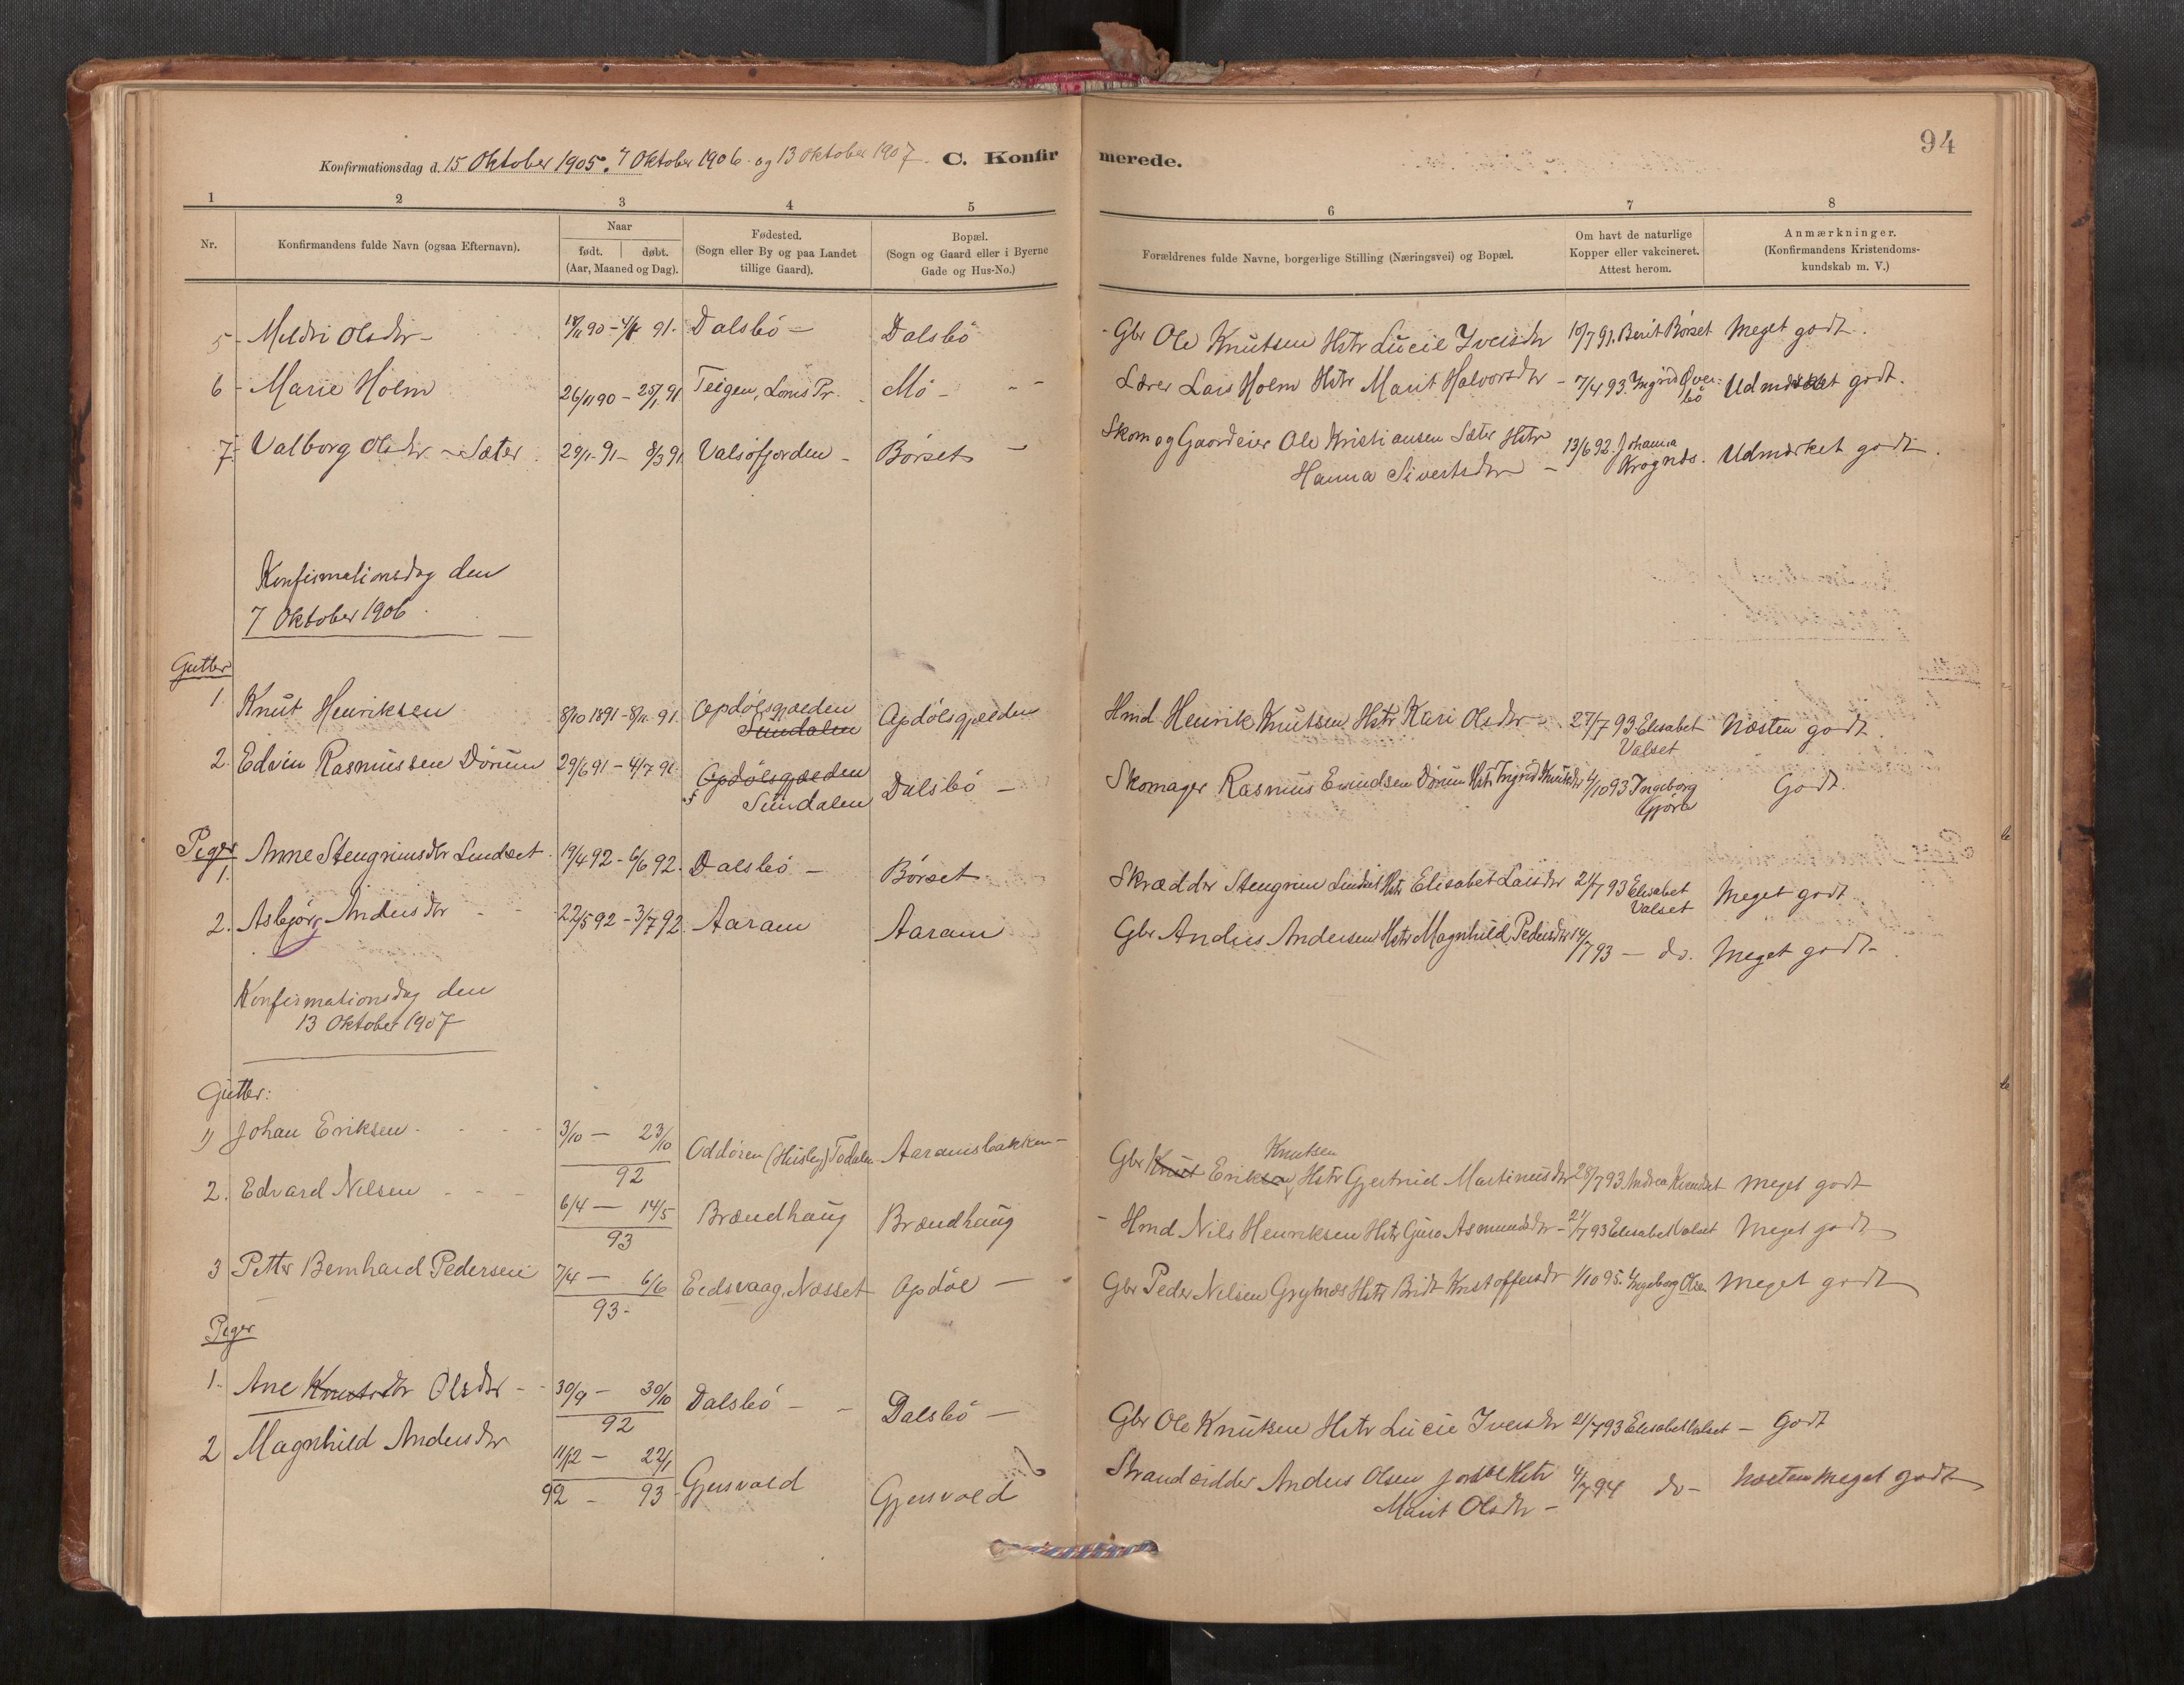 94
Konfirmationsdag d. 15 Oktober 1905. 7 Oktober 1906 og 13 Oktober 1907. C. Konfirmerede.
1 2 3 4 5 6 7 8
Nr. Konfirmandens fulde Navn (ogsaa Efternavn). Naar født. døbt. (Aar, Maaned og Dag). Fødested. (Sogn eller By og paa Landet tillige Gaard). Bopæl. (Sogn og Gaard eller i Byerne Gade og Hus-No.) Forældrenes fulde Navne, borgerlige Stilling (Næringsvei) og Bopæl. Om havt de naturlige Kopper eller vakcineret. Attest herom. Anmærkninger. (Konfirmandens Kristendomskundskab m. V.)
5 - Meldri Olsdtr - 90 - 91. Dalsbö - Dalsbö - Gbr Ole Knutsen Hstr Lucie Iversdtr 10/7 91. Berit Börset Meget godt.
6 - Marie Holm 26/11 90 - 25/1 91 Teigen, Loms Pr. Mö - Lærer Lars Holm Hstr Marit Halvorsdtr - 7/4 93. Ingrid Överbö Udmærket godt.
7. Valborg Olsdtr - Sæter 29/1 91 - 8/3 91 Valsöfjorden - Börset - Skom og Gaardeier Ole Kristiansen Sæter Hstr 13/6 92. Johanna Krognæs. Udmærket godt.
Hanna Sivertsdtr -
Konfirmationsdag den
7 Oktober 1906.
Gutter
1. Knut Henriksen 8/10 1891 - 8/11 91. Opdölsgjælden Sundalen Opdölsgjælden Hmd Henrik Knutsen Hstr Kari Olsdtr - 27/7 93 Elisabet Valset Næsten godt.
2. Edvin Rasmussen Dörum 29/6 91 - 4/7 91 Opdölsgjælden Sundalen Dalsbö - Skomager Rasmus Evindsen Dörum Hstr Ingrid Knutsdtr 4/10 93 Ingeborg Gjöra Godt.
Piger
1. Anne Stengrimsdtr Lindset. 19/4 92 - 6/6 92. Dalsbö - Börset Skrædder Stengrim Lindset Hstr Elisabet Larsdtr 21/7 93 Elisabet Valset Meget godt
2. Asbjörg Andersdtr - 22/5 92 - 3/7 92. Aaram Aaram Gbr Anders Andersen Hstr Magnhild Pedersdtr 14/7 93 - do. Meget godt -
Konfirmationsdag den
13 Oktober 1907
Gutter:
1) Johan Eriksen - 3/10 - 23/10 92 Oddören (Husby) Todalen Aaramsbakken - Gbr Knut Eriksen Knutsen Hstr Gjertrud Martinusdtr 28/7 93 Andrea Kvendset Meget godt
2. Edvard Nilsen - 6/4 - 14/5 93 Brændhaug Brændhaug - Hmd Nils Henriksen Hstr Guro Asmundsdtr - 21/7 93 Elisabet Valset Meget godt
3 Petter Bernhard Pedersen 7/4 - 6/6 93 - Eidsvaag, Næsset Opdöl - Gbr Peder Nilsen Grytnæs Hstr Brit Kristoffersdtr 1/10 95. Ingeborg Olsen Meget godt
Piger
1. Ane Knutsdtr Olsdtr - 30/9 - 30/10 92 Dalsbö - Dalsbö - Gbr Ole Knutsen Hstr Lucie Iversdtr 21/7 93 Elisabet Valset - Godt
2 Magnhild Andersdtr 11/12 - 22/1 92 - 93 - Gjersvold Gjersvold Strandsidder Anders Olsen Hstr 4/7 94 do - Næsten meget godt
Marit Olsdtr -